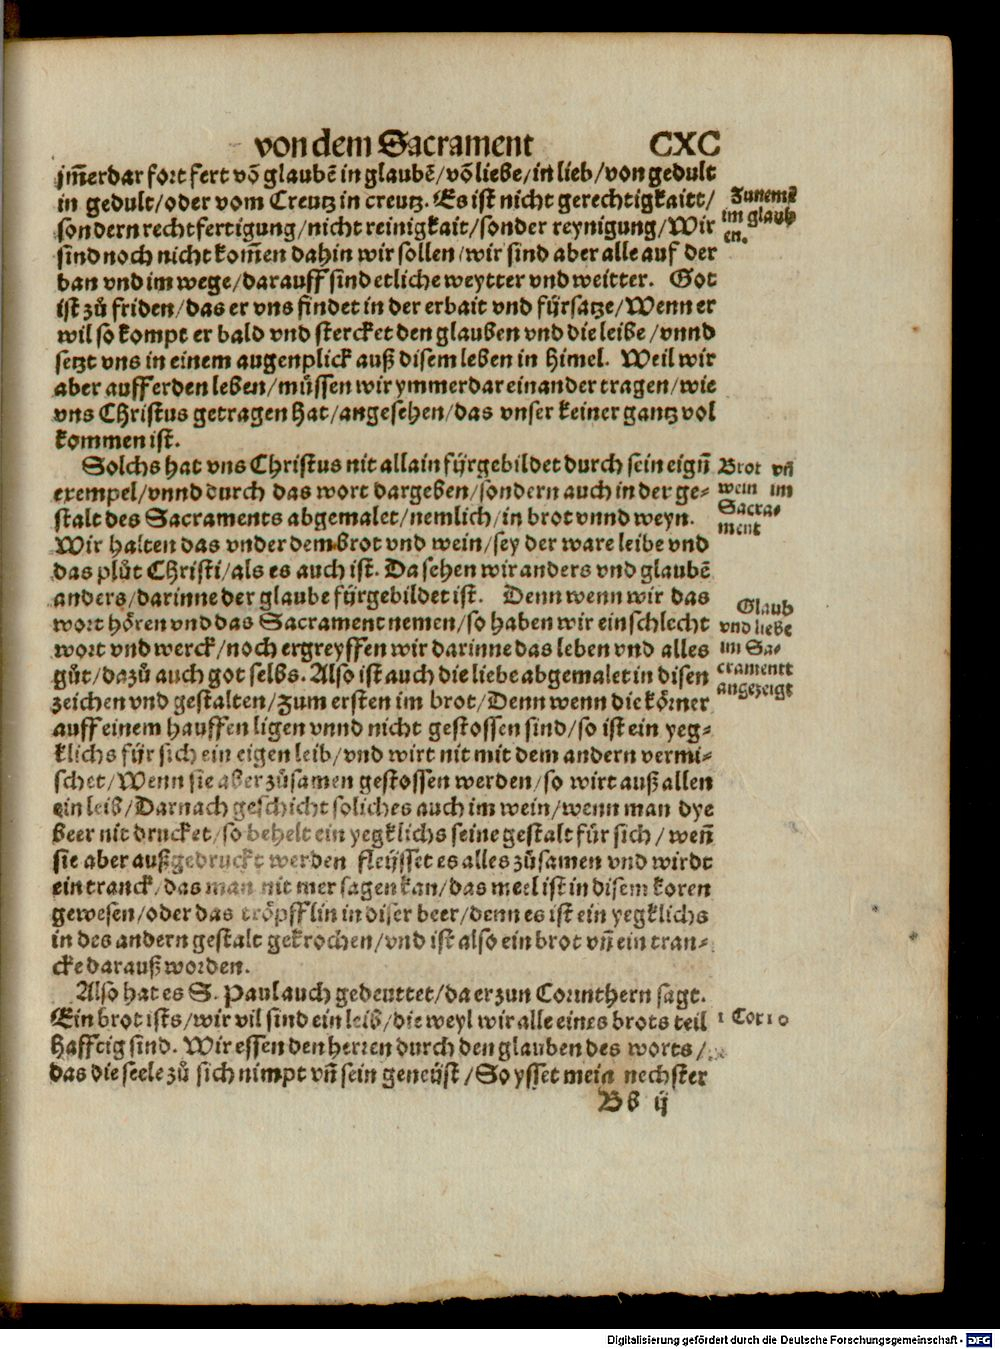 von dem Sacrament CXC
jm̃erdar fort fert võ glaubẽ in glaubẽ/võ liebe/in lieb/von gedult
in gedult/oder vom Creutz in creutz. Es ist nicht gerechtigkaitt/
sondern rechtfertigung/nicht reinigkait/sonder reynigung/Wir
sind noch nicht kom̃en dahin wir sollen/wir sind aber alle auf der
ban vnd im wege/darauff sind etliche weytter vnd weitter. Got
ist zů friden/das er vns findet in der erbait vnd fürsatze/Wenn er
wil so kompt er bald vnd stercket den glauben vnd die leibe/vnnd
setzt vns in einem augenplick auß disem leben in Himel. Weil wir
aber auff erden leben/müssen wir ymmerdar einander tragen/wie
vns Christus getragen hat/angesehen/das vnser keiner gantz vol
kommen ist.
Zunemẽ
im glaub
en.
Solchs hat vns Christus nit allain fürgebildet durch sein eigñ
exempel/vnnd durch das wort dargeben/sondern auch in der ge-
stalt des Sacraments abgemalet/nemlich/in brot vnnd weyn.
Wir halten das vnder dem brot vnd wein/sey der ware leibe vnd
das plůt Christi/als es auch ist. Da sehen wir anders vnd glaubẽ
anders/darinne der glaube fürgebildet ist. Denn wenn wir das
wort hören vnd das Sacrament nemen/so haben wir ein schlecht
wort vnd werck/noch ergreyffen wir darinne das leben vnd alles
gůt/dazů auch got selbs. Also ist auch die liebe abgemalet in disen
zeichen vnd gestalten/Zum ersten im brot/Denn wenn die körner
auff einem hauffen ligen vnnd nicht gestossen sind/so ist ein yeg-
klichs für sich ein eigen leib/vnd wirt nit mit dem andern vermi-
schet/Wenn sie aber zůsamen gestossen werden/so wirt auß allen
ein leib/Darnach geschicht soliches auch im wein/wenn man dye
beer nit drucket/so behelt ein yegklichs seine gestalt für sich/weñ
sie aber außgedruckt werden fleüsset es alles zůsamen vnd wirdt
ein tranck/das man nit mer sagen kan/das meel ist in disem koren
gewesen/oder das tröpfflin in diser beer/denn es ist ein yegklichs
in des andern gestalt gekrochen/vnd ist also ein brot vñ ein tran-
cke darauß worden.
Brot vñ
wein im
Sacra-
ment
Glaub
vnd liebe
im Sa-
cramentt
angezeigt
Also hat es S. Paul auch gedeuttet/da er zun Corinthern sagt.
Ein brot ists/wir vil sind ein leib/die weyl wir alle eines brots teil
hafftig sind. Wir essen den herren durch den glauben des worts/
das die seele zů sich nimpt vñ sein geneüst/So ysset mein nechster
1 Cor 10
Bb ij
Digitalisierung gefördert durch die Deutsche Forschungsgemeinschaft - DFG